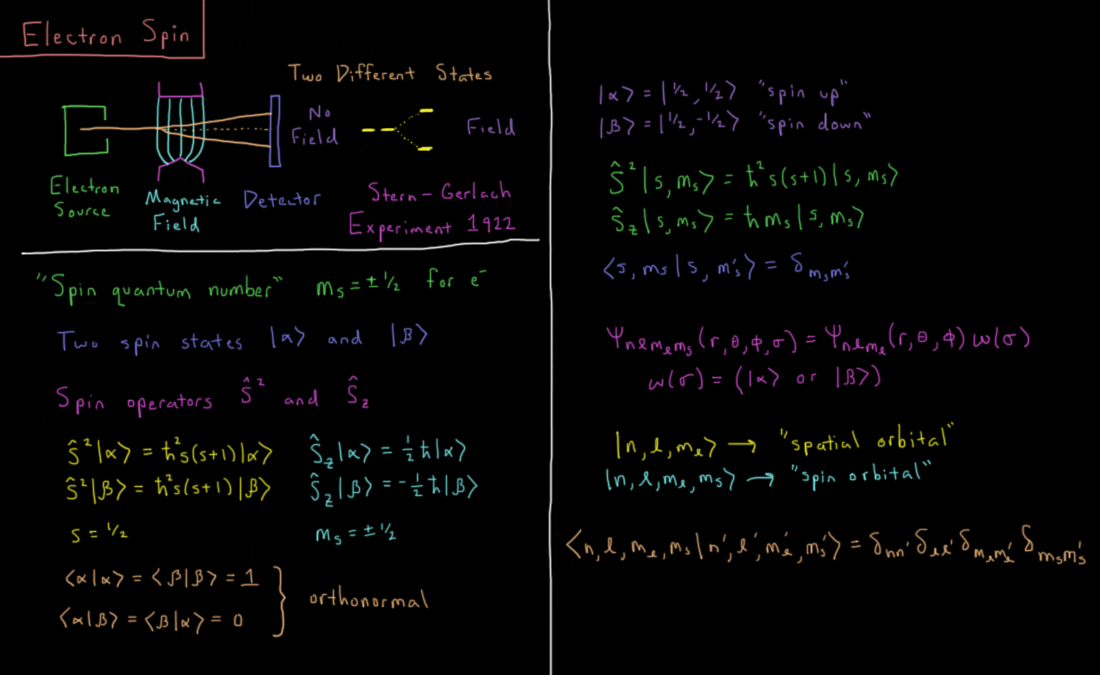 Electron Spin
Two Different States
No Field
Field
Electron Source
Magnetic Field
Detector
Stern-Gerlach
Experiment 1922
"Spin quantum number" mₛ = ±1/2 for e⁻
Two spin states |α⟩ and |β⟩
Spin operators Ŝ² and Ŝ_z
Ŝ²|α⟩ = ħ²s(s+1)|α⟩ Ŝ_z|α⟩ = ½ħ|α⟩
Ŝ²|β⟩ = ħ²s(s+1)|β⟩ Ŝ_z|β⟩ = -½ħ|β⟩
s = 1/2 mₛ = ±1/2
⟨α|α⟩ = ⟨β|β⟩ = 1
⟨α|β⟩ = ⟨β|α⟩ = 0
} orthonormal
|α⟩ = |1/2, 1/2⟩ "spin up"
|β⟩ = |1/2, -1/2⟩ "spin down"
Ŝ²|s, mₛ⟩ = ħ²s(s+1)|s, mₛ⟩
Ŝ_z|s, mₛ⟩ = ħmₛ|s, mₛ⟩
⟨s, mₛ|s, mₛ'⟩ = δ_{mₛmₛ'}
Ψ_{nℓm_ℓmₛ}(r, θ, ϕ, σ) = Ψ_{nℓm_ℓ}(r, θ, ϕ) ω(σ)
ω(σ) = (|α⟩ or |β⟩)
|n, ℓ, m_ℓ⟩ → "spatial orbital"
|n, ℓ, m_ℓ, mₛ⟩ → "spin orbital"
⟨n, ℓ, m_ℓ, mₛ|n', ℓ', m_ℓ', mₛ'⟩ = δ_{nn'} δ_{ℓℓ'} δ_{m_ℓm_ℓ'} δ_{mₛmₛ'}